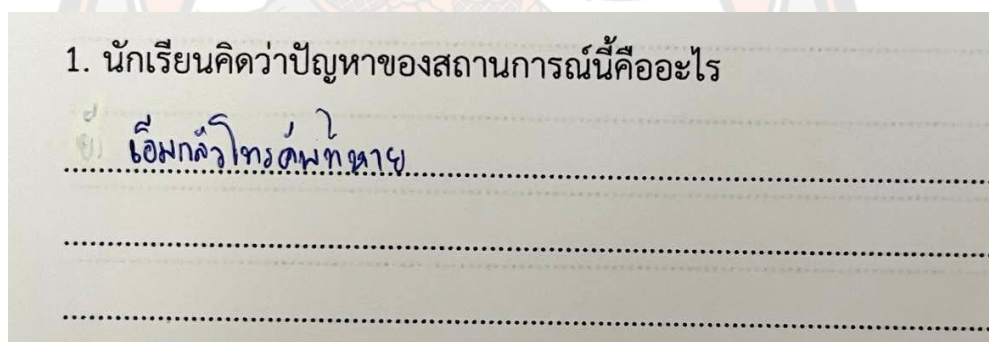 1. นักเรียนคิดว่าปัญหาของสถานการณ์นี้คืออะไร
เอิมกลัวโทรศัพท์หาย